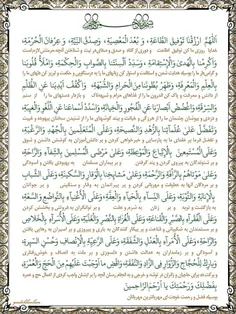 اَللّهُمَّ ارْزُقْنا تَوْفیقَ الطّاعَةِ، وَ بُعْدَ الْمَعْصِیَةِ، وَ صِدْقَ النِّیَّةِ، وَ عِرْفانَ الْحُرْمَةِ،
خدایا روزی ما کن توفیق اطاعت و دوری از گناه و صدق و صفای در نیت و شناختن آنچه حرمتش لازم است
وَ اَکْرِمْنا بِالْهُدی وَالْاِسْتِقامَةِ، وَ سَدِّدْ اَلْسِنَتَنا بِالصَّوابِ وَالْحِکْمَةِ، وَ امْلَأْ قُلُوبَنا
و گرامی دار ما را بوسیله هدایت شدن و استقامت و استوار کن زبانهای ما را به درستگویی و حکمت و لبریز کن دلهای ما را
بِالْعِلْمِ وَالْمَعْرِفَةِ، وَ طَهِّرْ بُطُونَنا مِنَ الْحَرامِ وَالشُّبْهَةِ، وَ اکْفُفْ اَیْدِیَنا عَنِ الظُّلْمِ
از دانش و معرفت و پاک کن اندرون ما را از غذاهای حرام و شبهه‌ناک و بازدار دستهای ما را از ستم
وَالسَّرِقَةِ، وَاغْضُضْ اَبْصارَنا عَنِ الْفُجُورِ وَالْخِیانَةِ، وَاسْدُدْ اَسْماعَنا عَنِ اللَّغْوِ وَالْغیبَةِ،
و دزدی و بپوشان چشمان ما را از هرزگی و خیانت و ببند گوشهای ما را از شنیدن سخنان بیهوده و غیبت
وَ تَفَضَّلْ عَلی عُلَمائِنا بِالزُّهْدِ وَالنَّصیحَةِ، وَ عَلَی الْمُتَعَلِّمینَ بِالْجُهْدِ وَالرَّغْبَةِ،
وَ عَلَی الْمُسْتَمِعینَ بِالْاِتِّباعِ وَالْمَوْعِظَةِ، وَ عَلی مَرْضَی الْمُسْلِمینَ بِالشِّفاءِ وَالرّاحَةِ،
وَ عَلی مَوْتاهُمْ بِالرَّأْفَةِ وَالرَّحْمَةِ، وَ عَلی مَشایِخِنا بِالْوَقارِ وَالسَّکینَةِ، وَ عَلَی الشَّبابِ
و بر مردگان آنها به عطوفت و مهربانی کردن و بر پیرانمان به وقار و سنگینی و بر جوانان
بِالْاِنابَةِ وَالتَّوْبَةِ، وَ عَلَی النِّساءِ بِالْحَیاءِ وَالْعِفَّةِ، وَ عَلَی الْاَغْنِیاءِ بِالتَّواضُعِ وَالسَّعَةِ،
به بازگشت و توبه و بر زنان به شرم و عفت و بر توانگران به فروتنی و بخشش کردن
وَ عَلَی الْفُقَراءِ بِالصَّبْرِ وَالْقَناعَةِ، وَ عَلَی الْغُزاةِ بِالنَّصْرِ وَالْغَلَبَةِ، وَ عَلَی الْاُسَراءِ بِالْخَلاصِ
و بر مستمندان به شکیبایی و قناعت و بر پیکار کنندگان به یاری و پیروزی و بر اسیران به رهایی یافتن
وَالرّاحَةِ، وَ عَلَی الْاُمَراءِ بِالْعَدْلِ وَالشَّفَقَةِ، وَ عَلَی الرَّعِیَّةِ بِالْاِنْصافِ وَ حُسْنِ السّیرَةِ،
و آسودگی و بر زمامداران به عدالت داشتن و دلسوزی و بر ملت به انصاف و خوش‌رفتاری
وَ بارِکْ لِلْحُجّاجِ وَالزُّوّارِ فِی الزّادِ وَالنَّفَقَةِ، وَاقْضِ ما اَوْجَبْتَ عَلَیْهِمْ مِنَ الْحَجِّ وَالْعُمْرَةِ،
بِفَضْلِکَ وَ رَحْمَتِکَ یا اَرْحَمَ الرّاحِمینَ
بوسیله فضل و رحمت خودت ای مهربانترین مهربانان